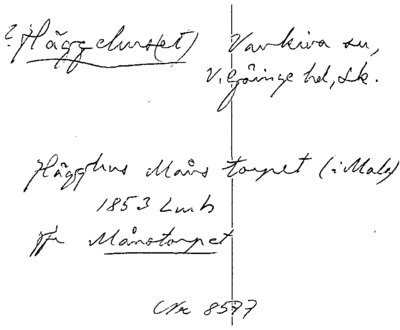 ? Häggehus(et) Vankiva sn,
V. Göinge hd, Sk.
Hägghus Måns torpet (i Mala)
1853 Lmb
Jfr Månstorpet
Nr 8577